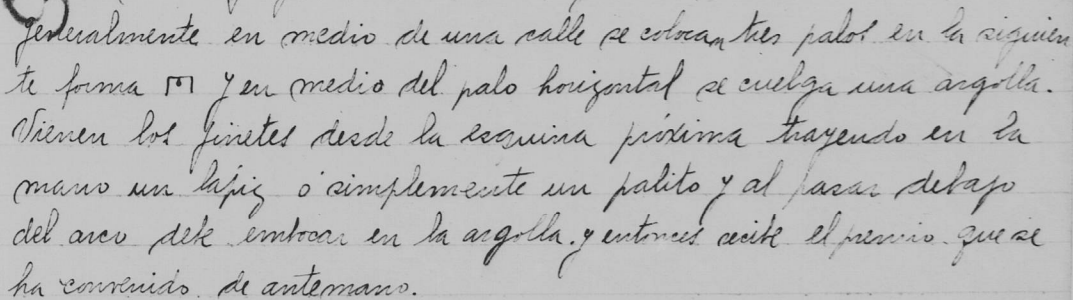 generalmente en medio de una calle se colocan tres palos en la siguien
te forma П y en medio del palo horizontal se cuelga una argolla.
Vienen los jinetes desde la esquina próxima trayendo en la
mano un lápiz ó simplemente un palito y al pasar debajo
del arco debe embocar en la argolla. y entonces recibe el premio que se
ha convenido de antemano.